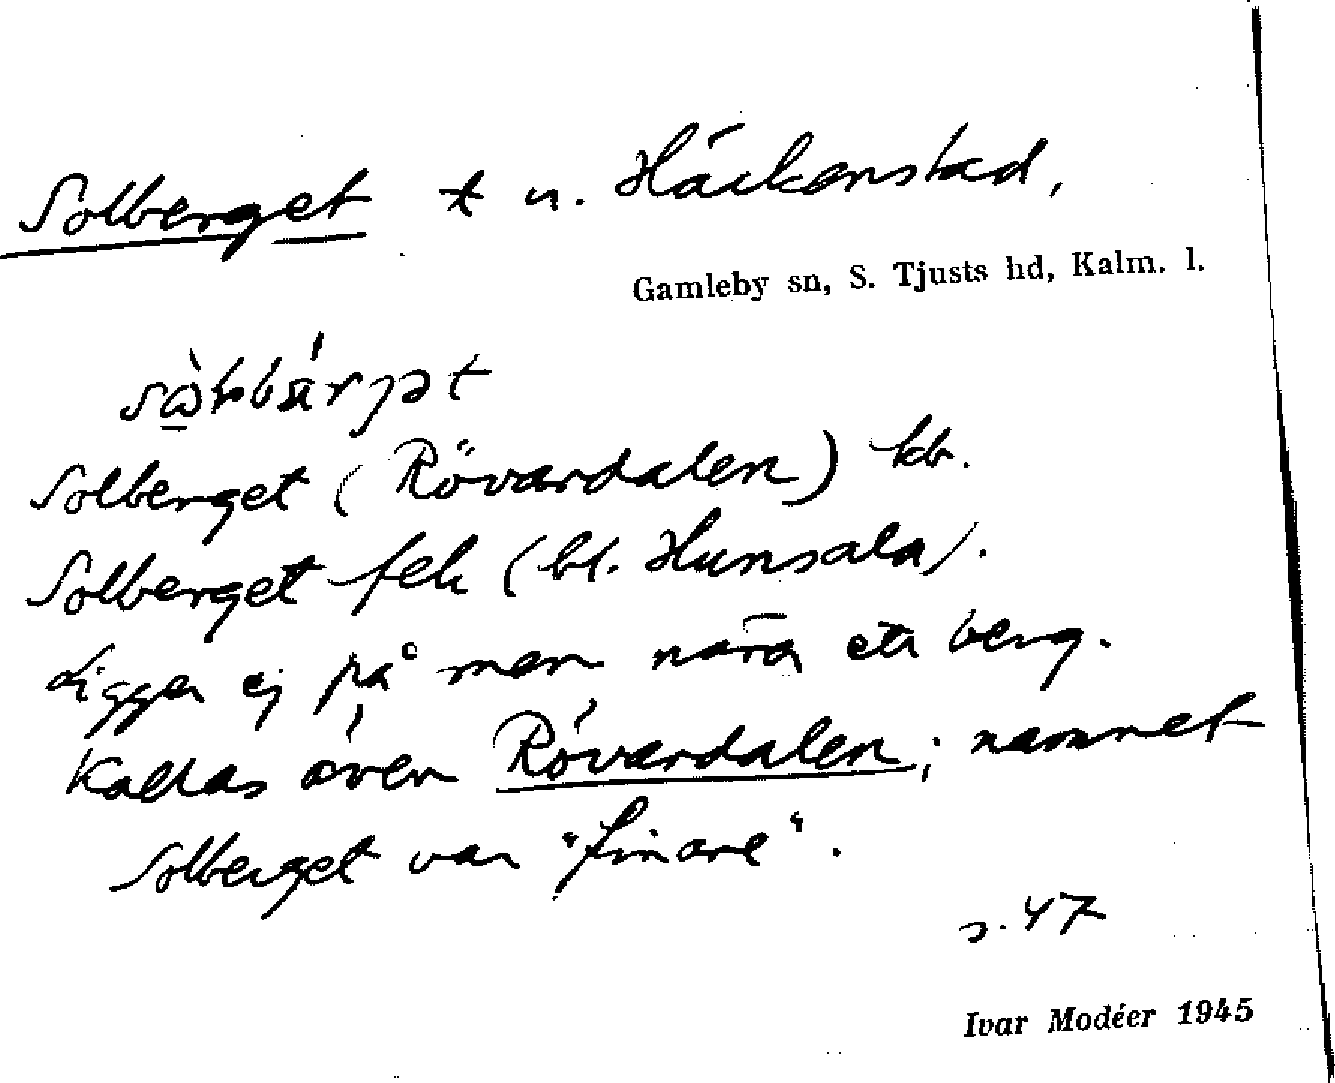 Solberget t u. Häckenstad,
Gamleby sn, S. Tjusts hd, Kalm. l.
Solberget (Rövardalen) kb.
Solberget fek (bl. Hunsala).
Ligger ej på men nära ett berg.
Kallas även Rövardalen; namnet
Solberget var "finare".
s. 47
Ivar Modéer 1945